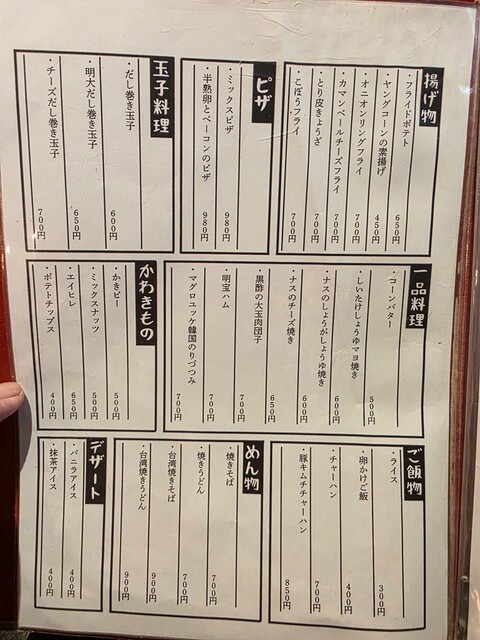 揚げ物
・フライドポテト 650円
・ヤングコーンの素揚げ 450円
・オニオンリングフライ 700円
・カマンベールチーズフライ 700円
・とり皮ぎょうざ 700円
・ごぼうフライ 700円
ピザ
・ミックスピザ 980円
・半熟卵とベーコンのピザ 980円
玉子料理
・だし巻き玉子 600円
・明太だし巻き玉子 650円
・チーズだし巻き玉子 700円
一品料理
・コーンバター 500円
・しいたけしょうゆマヨ焼き 600円
・ナスのしょうがしょうゆ焼き 600円
・ナスのチーズ焼き 650円
・黒酢の大玉肉団子 700円
・明宝ハム 700円
・マグロユッケ韓国のりづつみ 700円
かわきもの
・かきピー 500円
・ミックスナッツ 500円
・エイヒレ 650円
・ポテトチップス 400円
ご飯物
・ライス 300円
・卵かけご飯 400円
・チャーハン 700円
・豚キムチチャーハン 850円
めん物
・焼きそば 700円
・焼きうどん 700円
・台湾焼きそば 900円
・台湾焼きうどん 900円
デザート
・バニラアイス 400円
・抹茶アイス 400円